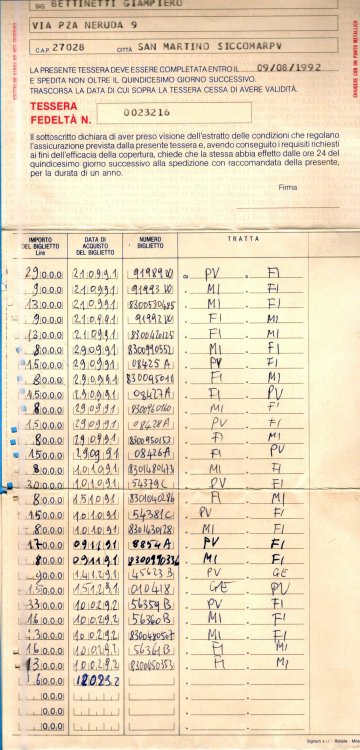 SIG. BETTINETTI GIAMPIERO
VIA PZA NERUDA 9
C.A.P. 27028 CITTÀ SAN MARTINO SICCOMARPV
LA PRESENTE TESSERA DEVE ESSERE COMPLETATA ENTRO IL 09/08/1992
E SPEDITA NON OLTRE IL QUINDICESIMO GIORNO SUCCESSIVO.
TRASCORSA LA DATA DI CUI SOPRA LA TESSERA CESSA DI AVERE VALIDITÀ.
TESSERA
FEDELTÀ N. 0023216
Il sottoscritto dichiara di aver preso visione dell'estratto delle condizioni che regolano
l'assicurazione prevista dalla presente tessera e, avendo conseguito i requisiti richiesti
ai fini dell'efficacia della copertura, chiede che la stessa abbia effetto dalle ore 24 del
quindicesimo giorno successivo alla spedizione con raccomandata della presente,
per la durata di un anno.
Firma
IMPORTO DEL BIGLIETTO Lire DATA DI ACQUISTO DEL BIGLIETTO NUMERO BIGLIETTO TRATTA
29.0.0.0 21.09.91 PV FI
9.0.0.0 21.09.91 MI FI
13.0.0.0 21.09.91 8300530485 MI FI
9.0.0.0 21.09.91 FI MI
13.0.0.0 21.09.91 FI MI
8.0.0.0 29.09.91 8300990552 MI FI
15.0.0.0 29.09.91 08425 A PV FI
8.0.0.0 29.09.91 FI MI
15.0.0.0 29.09.91 08427 A FI PV
8.0.0.0 29.09.91 MI FI
15.0.0.0 29.09.91 08428 A PV FI
8.0.0.0 29.09.91 8300950153 FI MI
15.0.0.0 29.09.91 08426 A FI PV
8.0.0.0 10.10.91 8301480473 MI FI
30.0.0.0 10.10.91 54379 C PV FI
8.0.0.0 15.10.91 8301040286 FI MI
15.0.0.0 10.10.91 54381 C PV FI
8.0.0.0 10.10.91 8301430128 MI FI
17.0.0.0 09.11.91 8854 A PV FI
8.0.0.0 09.11.91 MI FI
9.0.0.0 14.12.91 45623 B PV GE
15.0.0.0 15.12.91 010418 GE PV
33.0.0.0 10.02.92 56359 B PV FI
16.0.0.0 10.02.92 56360 B MI FI
13.0.0.0 10.02.92 8300480507 MI FI
16.0.0.0 10.02.92 56361 B FI MI
13.0.0.0 10.02.92 8300450353 FI MI
0.0.0
0.0.0
0.0.0
0.0.0